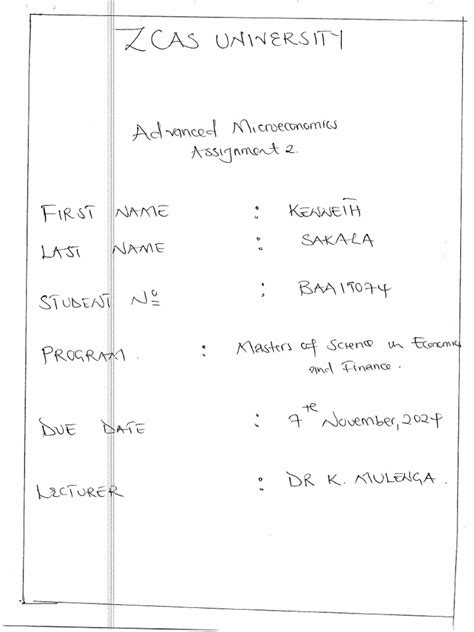 ZCAS UNIVERSITY
Advanced Microeconomics
Assignment 2.
FIRST NAME : KENNETH
LAST NAME : SAKALA
STUDENT Nº : BAA19074
PROGRAM. : Masters of Science in Economics
and Finance.
DUE DATE : 7te November, 2024
LECTURER : DR K. MULENGA.